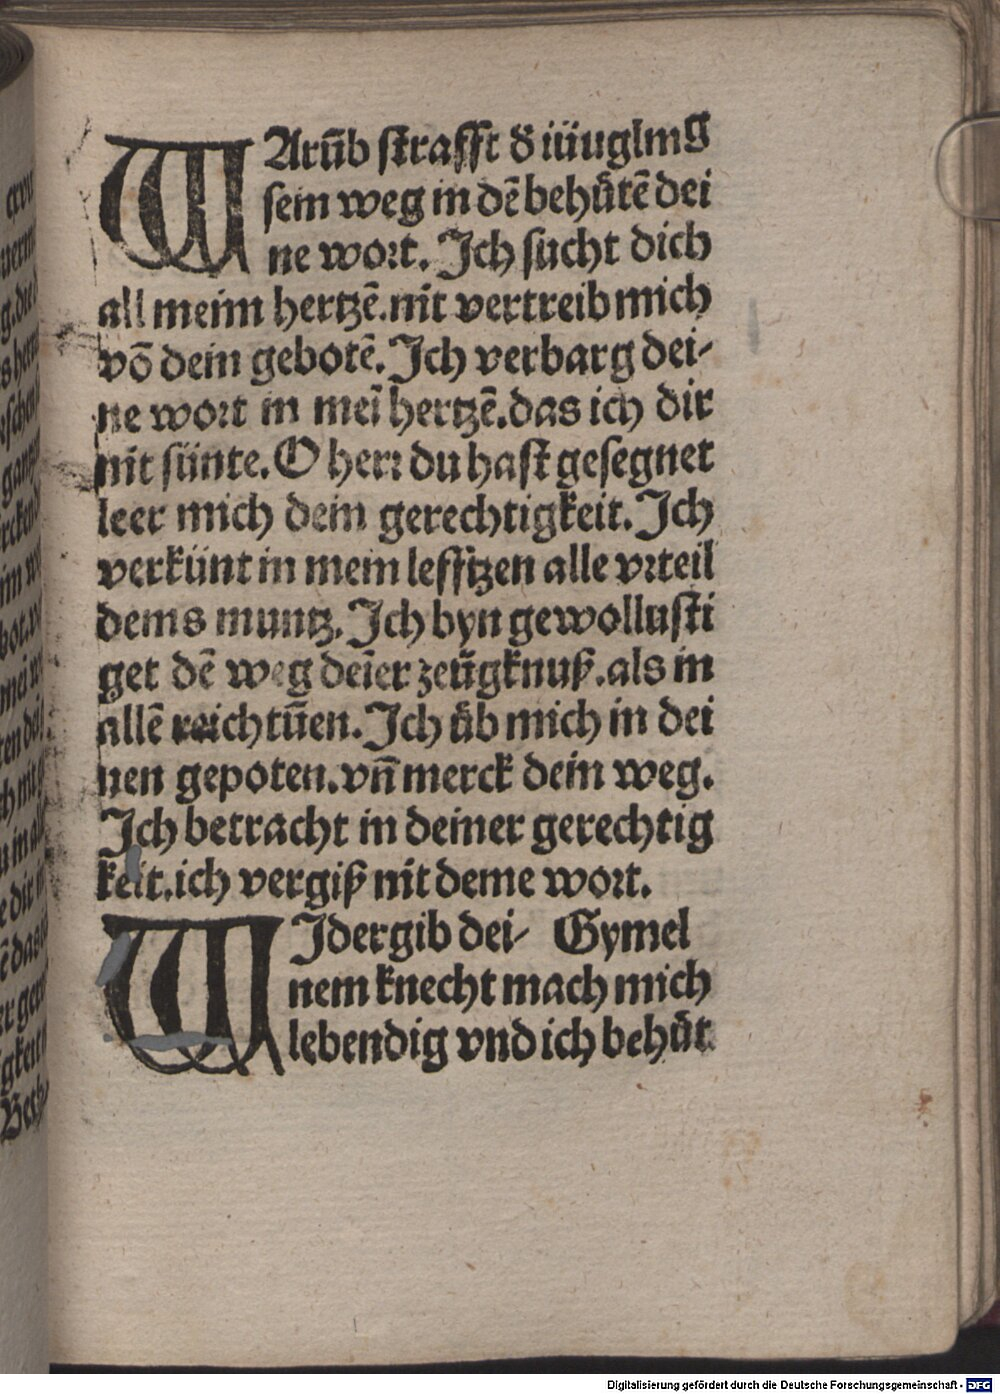 WArūb strafft d̕ iüuglmg
sein weg in dē behu̍tē dei
ne wort. Ich sücht dich
all meim hertzē. nit vertreib mich
vō dein gebotē. Ich verbarg dei⸗
ne wort in meī hertzē. das ich dir
nit sünte. O herr du hast gesegnet
leer mich dein gerechtigkeit. Ich
verkünt in mein lefftzen alle vrteil
deins muntz. Ich byn gewollusti
get dē weg deīer zeügknuß. als in
allē reichtūen. Ich üb mich in dei
nen gepoten. vn̄ merck dein weg.
Ich betracht in deiner gerechtig
keit. ich vergiß nit deine wort.
WIdergib dei⸗ Gymel
nem knecht mach mich
lebendig vnd ich behüt
Digitalisierung gefördert durch die Deutsche Forschungsgemeinschaft - DFG